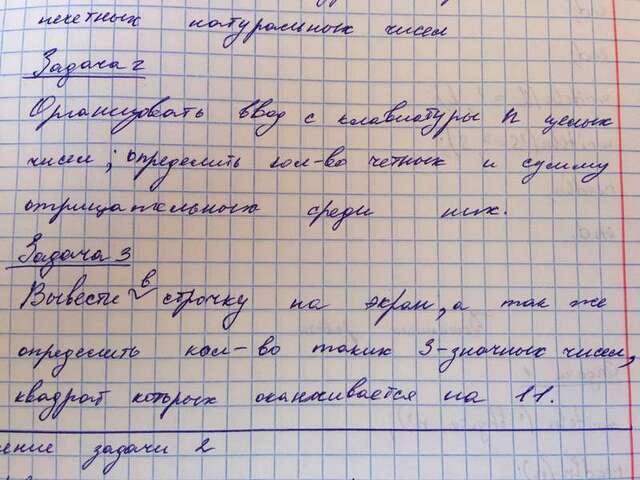 нечетных натуральных чисел
Задача 2
Организовать ввод с клавиатуры n целых
чисел; определить кол-во четных и сумму
отрицательных среди них.
Задача 3
Вывести в строчку на экран, а так же
определить кол-во таких 3-значных чисел,
квадрат которых оканчивается на 11.
ение задачи 2